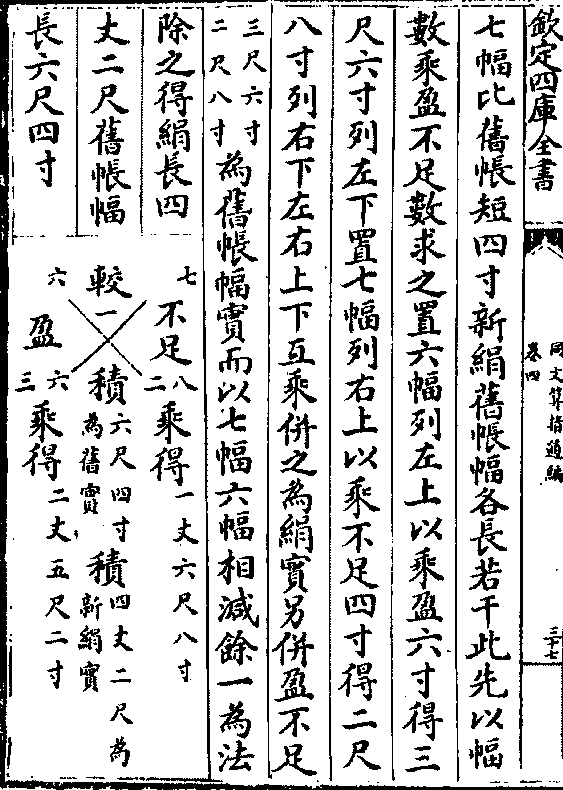 欽定四庫全書
同文算指通編
卷四
三十七
七幅比舊帳短四寸新絹舊帳幅各長若干此先以幅
數乘盈不足數求之置六幅列左上以乘盈六寸得三
尺六寸列左下置七幅列右上以乘不足四寸得二尺
八寸列右下左右上下互乘併之為絹實另併盈不足
三尺六寸
二尺八寸
為舊帳幅實而以七幅六幅相減餘一為法
除之得絹長四
丈二尺舊帳幅
長六尺四寸
七 不足 二八 乘得 一丈六尺八寸
較一 積 六尺四寸為舊實 積 四丈二尺為新絹實
六 盈 三六 乘得 二丈五尺二寸